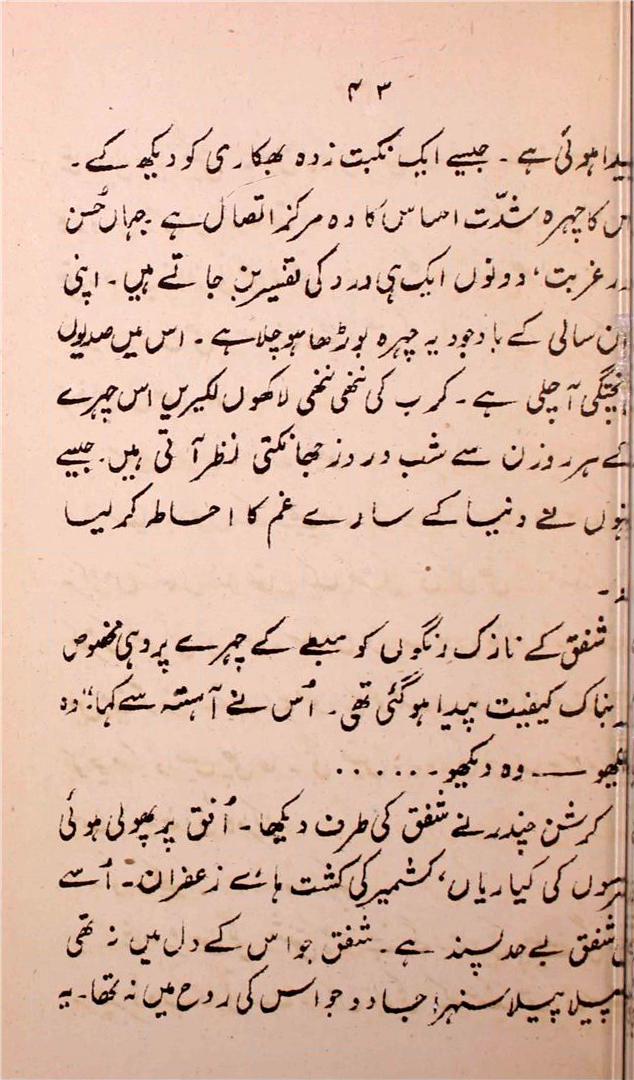 ۴۳
پیدا ہوئی ہے۔ جیسے ایک نکبت زدہ بھکاری کو دیکھ کے۔
اس کا چہرہ شدّت احساس کا وہ مرکز اتصال ہے جہاں حُسن
اور غربت، دونوں ایک ہی درد کی تفسیر بن جاتے ہیں۔ اپنی
سالی کے باوجود یہ چہرہ بوڑھا ہو چلا ہے۔ اس میں صدیوں
پختگی آ چلی ہے۔ کرب کی ننھی ننھی لاکھوں لکیریں اس چہرے
کے ہر روزن سے شب و روز جھانکتی نظر آتی ہیں۔ جیسے
نے دنیا کے سارے غم کا احاطہ کر لیا
ہے۔
شفق کے نازک رنگوں کو مبعے کے چہرے پر وہی مخصوص
کیفیت پیدا ہو گئی تھی۔ اُس نے آہستہ سے کہا: "وہ
دیکھو — وہ دیکھو۔ ......
کرشن چندر نے شفق کی طرف دیکھا۔ اُفق پر پھولی ہوئی
سرسوں کی کیاریاں، کشمیر کی کشت ہائے زعفران۔ اُسے
شفق بے حد پسند ہے۔ شفق جو اس کے دل میں نہ تھی
پیلا پیلا سنہرا جادو جو اس کی روح میں نہ تھا۔ یہ